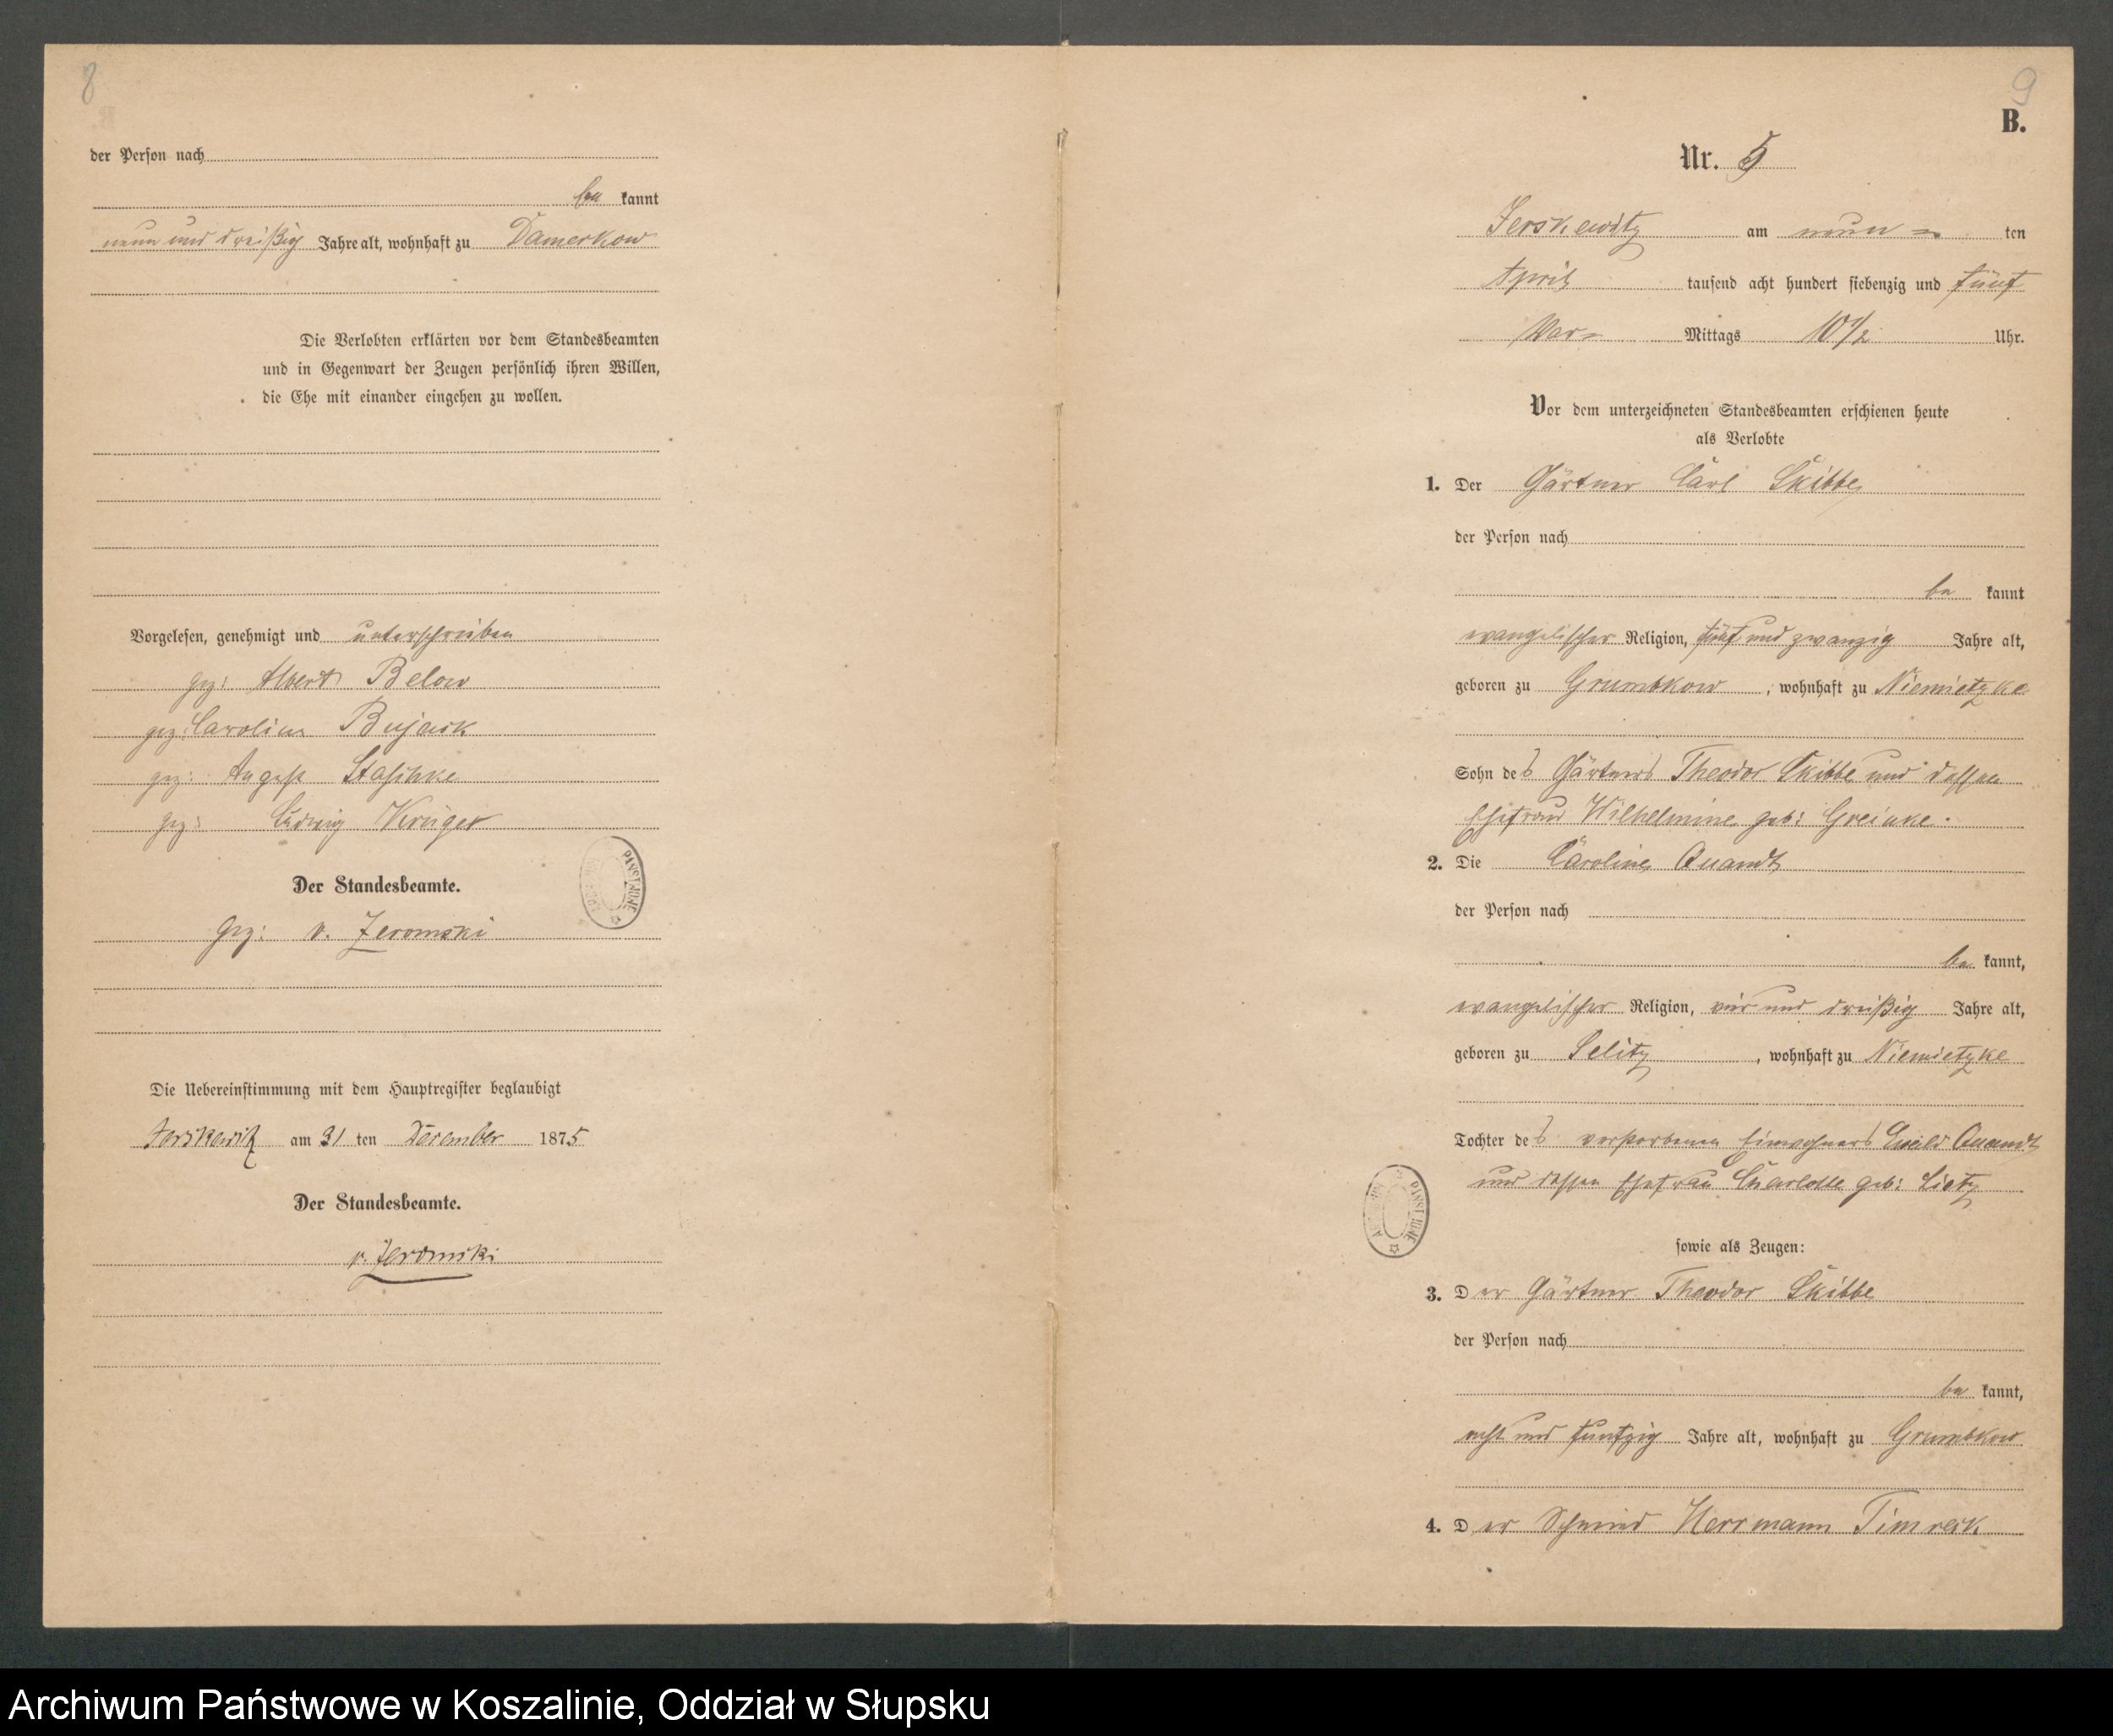 8
der Person nach
be kannt
neun und dreißig Jahre alt, wohnhaft zu Damerkow
Die Verlobten erklärten vor dem Standesbeamten
und in Gegenwart der Zeugen persönlich ihren Willen,
die Ehe mit einander eingehen zu wollen.
Vorgelesen, genehmigt und unterschrieben
gez: Albert Below
gez: Caroline Bujack
gez: August Staschke
gez: Ludwig Krüger
Der Standesbeamte.
gez: v. Jeromski
Die Uebereinstimmung mit dem Hauptregister beglaubigt
Jerskewitz am 31 ten December 1875
Der Standesbeamte.
v. Jeromski
9
B.
Nr. 5
Jerskewitz am neun ten
April tausend acht hundert siebenzig und fünf
Vor Mittags 10 1/2 Uhr.
Vor dem unterzeichneten Standesbeamten erschienen heute
als Verlobte
1. Der Gärtner Carl Skibbe
der Person nach
be kannt
evangelischer Religion, fünf und zwanzig Jahre alt,
geboren zu Grumbkow, wohnhaft zu Niemietzke
Sohn des Gärtners Theodor Skibbe und dessen
Ehefrau Wilhelmine geb: Greinke.
2. Die Caroline Quandt
der Person nach
be kannt,
evangelischer Religion, vier und dreißig Jahre alt,
geboren zu Selitz, wohnhaft zu Niemietzke
Tochter des verstorbenen Einwohners Ewald Quandt
und dessen Ehefrau Charlotte geb: Lietz
sowie als Zeugen:
3. Der Gärtner Theodor Skibbe
der Person nach
be kannt,
acht und funfzig Jahre alt, wohnhaft zu Grumbkow
4. Der Schmied Herrmann Timreck
Archiwum Państwowe w Koszalinie, Oddział w Słupsku